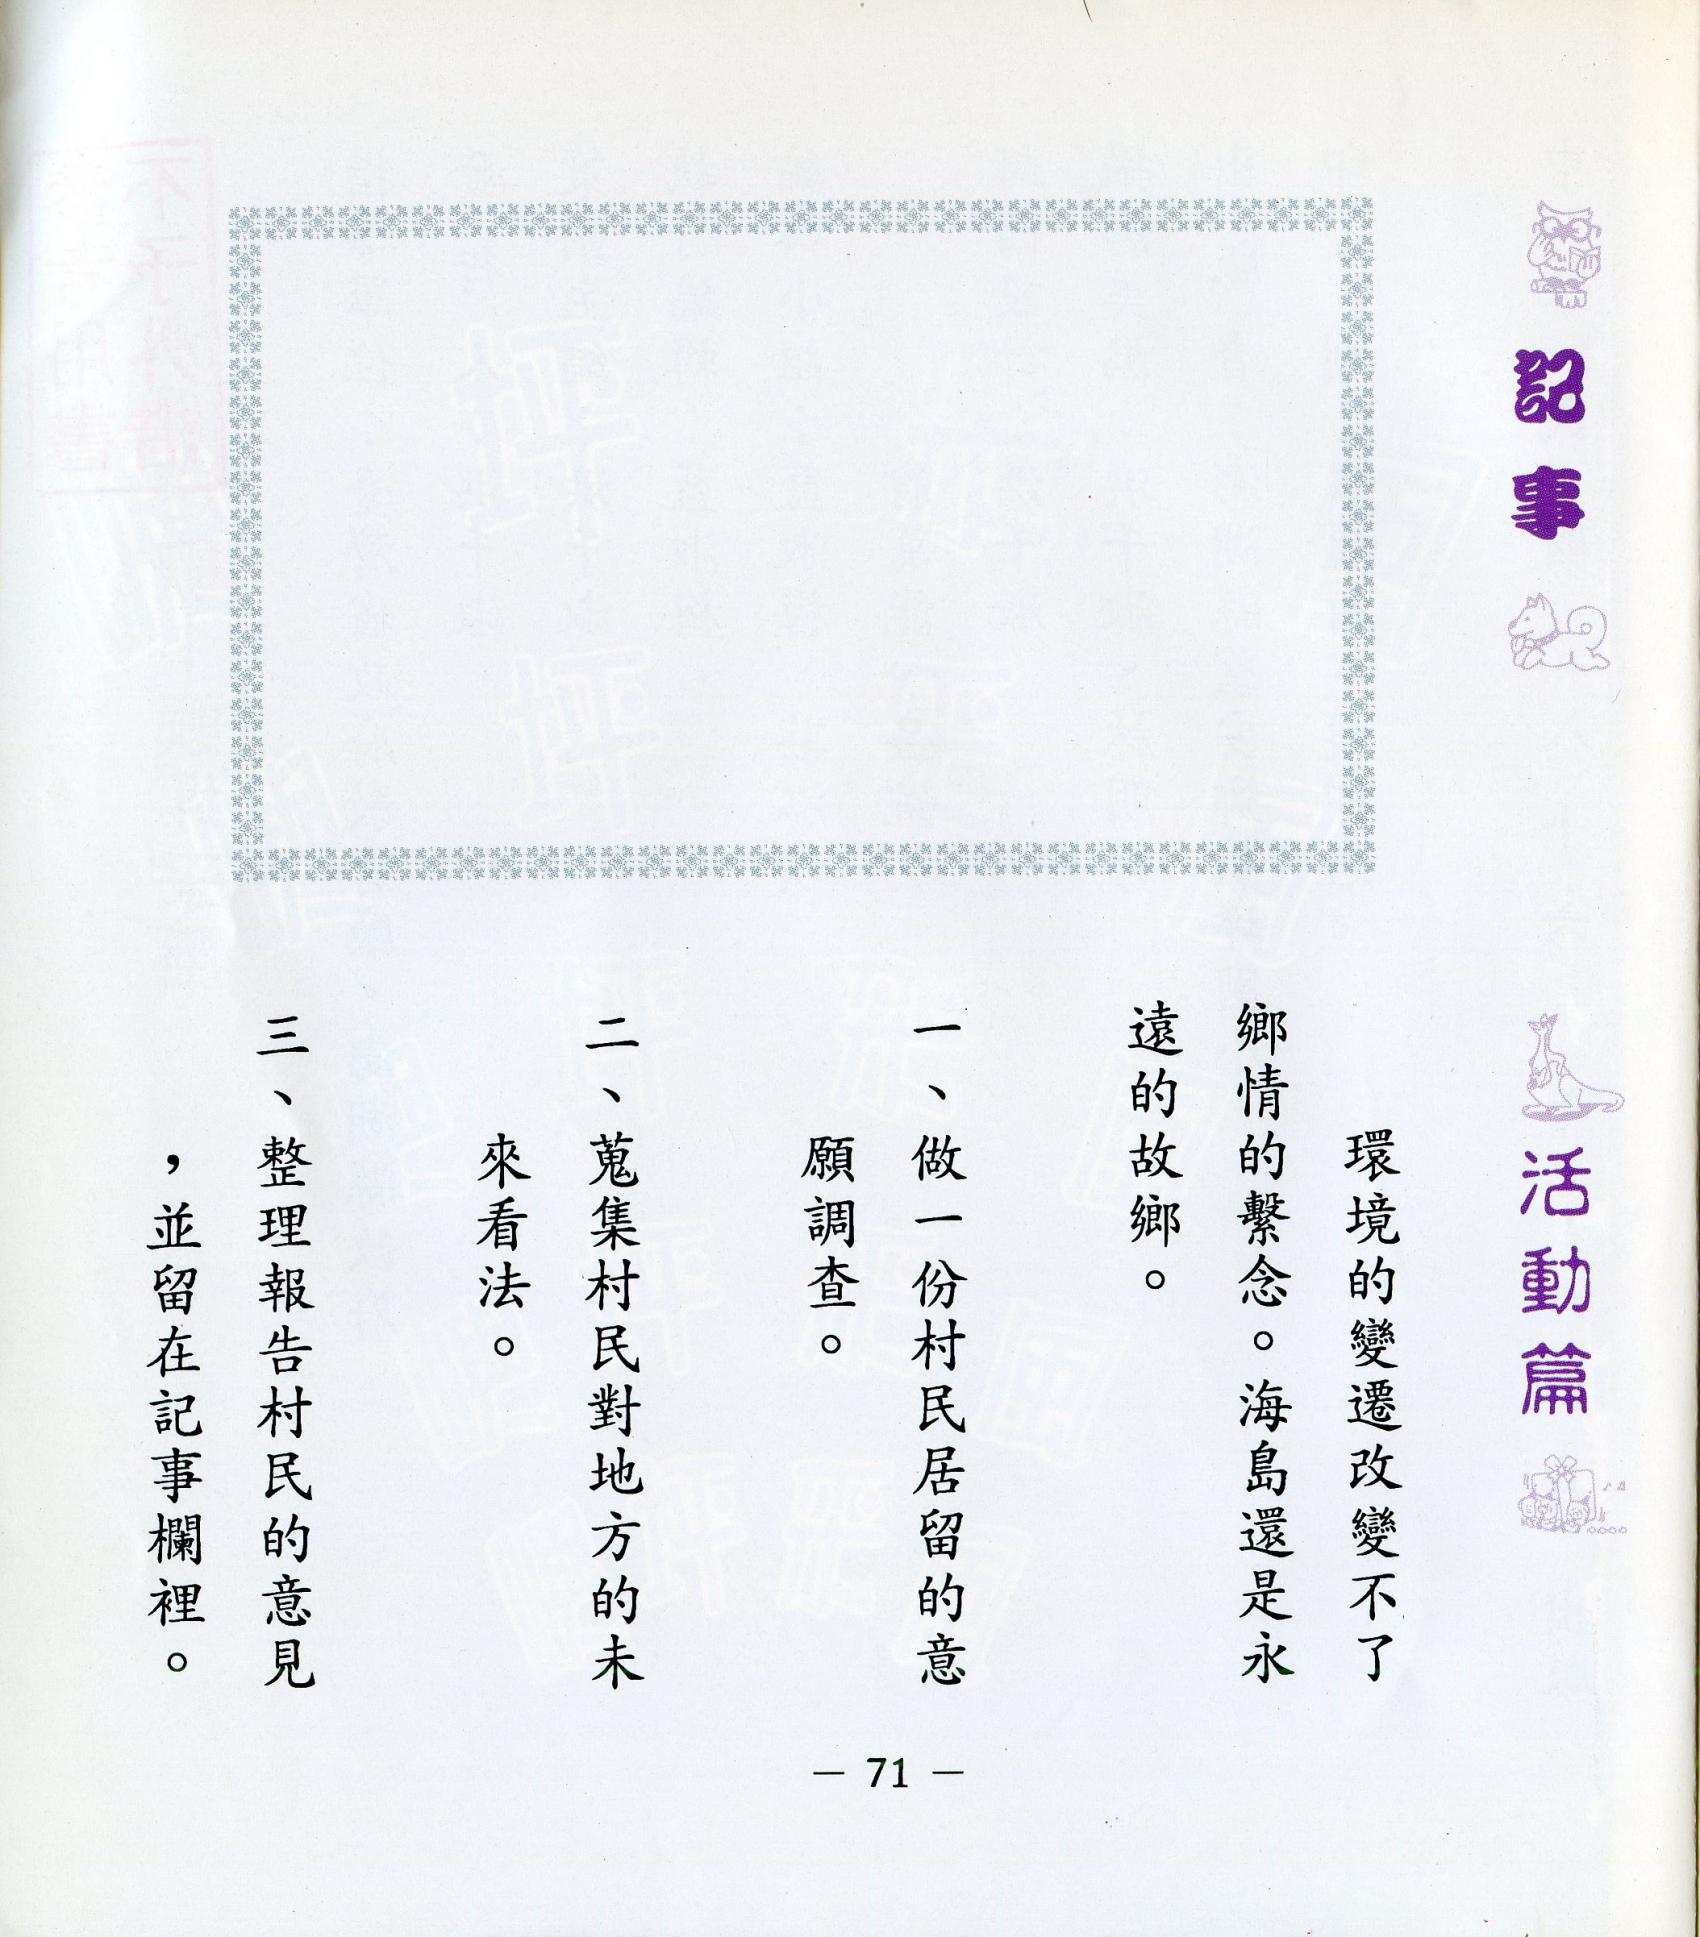 記事
活動篇
環境的變遷改變不了
鄉情的繫念。海島還是永
遠的故鄉。
一、做一份村民居留的意
願調查。
二、蒐集村民對地方的未
來看法。
三、整理報告村民的意見
,並留在記事欄裡。
— 71 —